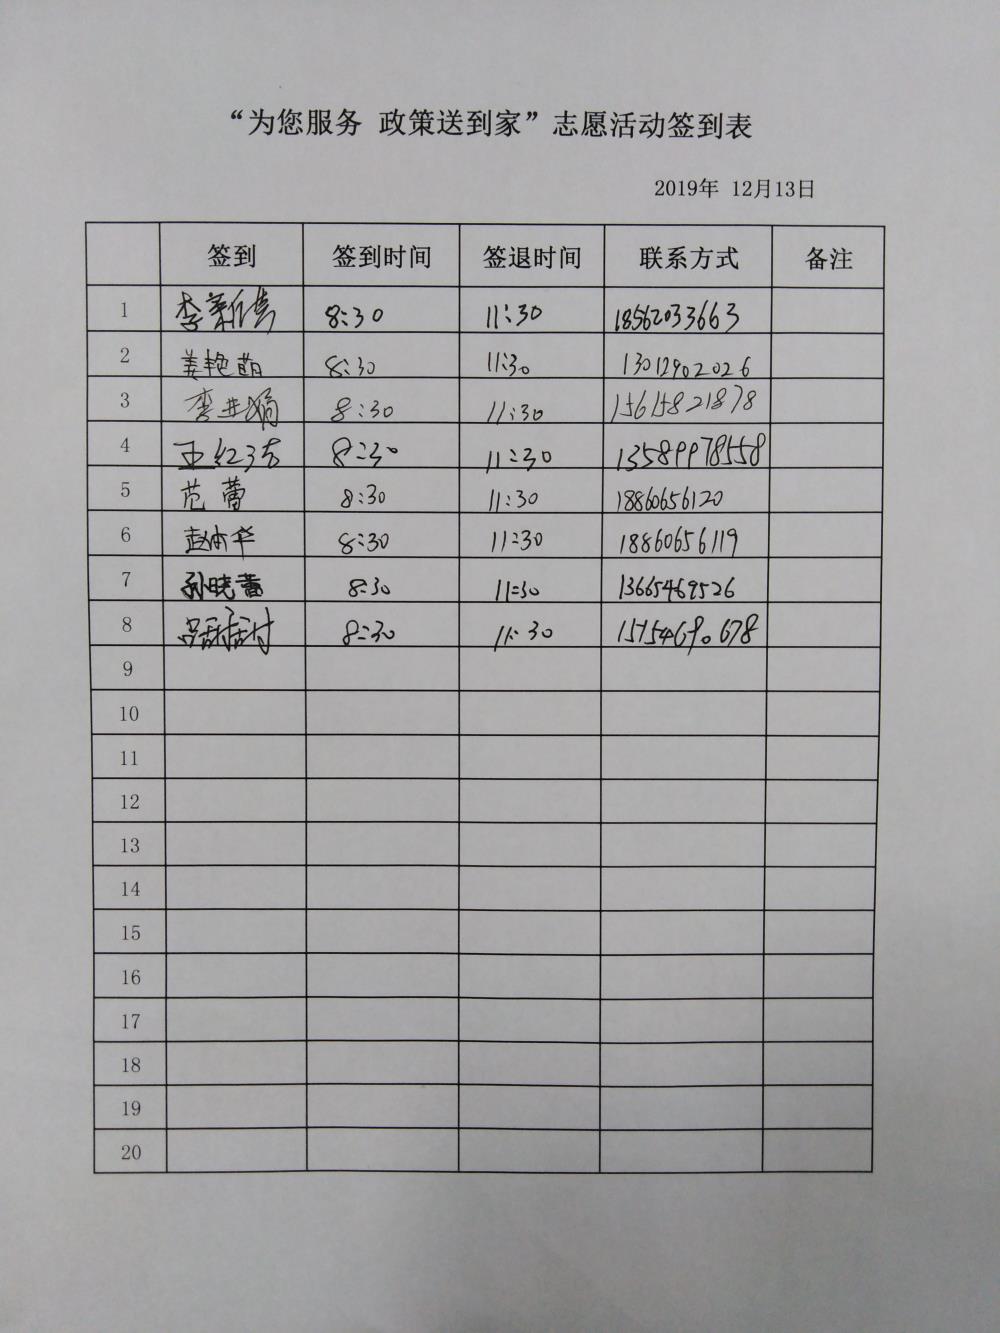 “为您服务 政策送到家”志愿活动签到表
2019年 12月13日
签到 签到时间 签退时间 联系方式 备注
1 李 8:30 11:30 18562033663
2 姜艳萌 8:30 11:30 13012902026
3 李娟 8:30 11:30 15615821878
4 王红 8:30 11:30 13589978558
5 范蕾 8:30 11:30 18860656120
6 赵华 8:30 11:30 18860656119
7 孙晓蕾 8:30 11:30 13665469526
8 吕 8:30 11:30 15154690678
9
10
11
12
13
14
15
16
17
18
19
20